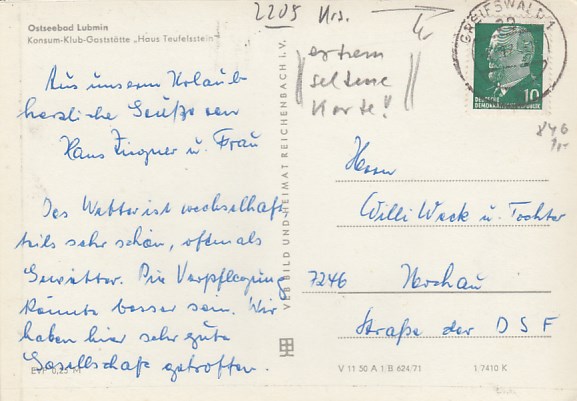 Ostseebad Lubmin
Konsum-Klub-Gaststätte „Haus Teufelsstein"
2205 Krs.
extrem
seltene
Karte!
Aus unserem Urlaub
herzliche Grüße von
Hans Zingner u. Frau
Das Wetter ist wechselhaft
teils sehr schön, oftmals
Gewitter. Die Verpflegung
könnte besser sein. Wir
haben hier sehr gute
Gesellschaft getroffen.
EVP 0,25 M
VEB BILD UND HEIMAT REICHENBACH I. V.
GREIFSWALD 1
22
10
DEUTSCHE
DEMOKRATISCHE REPUBLIK
Herrn
Willi Weck u. Tochter
7246 Nerchau
Straße der D S F
V 11 50 A 1/B 624/71 1/7410 K